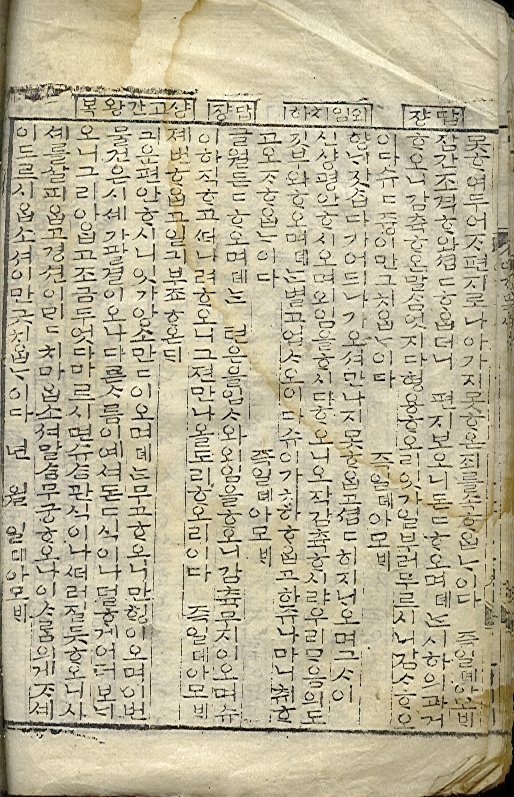 답쟝
편지로나아가지못ᄒᆞ온죄를ᄒᆞ옵ᄂᆞ이다 즉일뎨아모ᄇᆡ
잠간조격ᄒᆞ와셥셥ᄒᆞ옵더니 편지보오니든든ᄒᆞ오며뎨ᄂᆞᆫ시하의과거
ᄒᆞ오니감츅ᄒᆞ온말ᄉᆞᆷ엇지다형용ᄒᆞ오리잇가일브러무르시니감샤ᄒᆞ오
이다슈슈듕이만그치옵ᄂᆞ이다 즉일뎨아모ᄇᆡ
외임치하
향녀갓ᄉᆞᆸ다가어드나가오셔만나지못ᄒᆞ옵고셥셥히지ᄂᆡ오며그ᄉᆞ이
신샹평안ᄒᆞ시오며외임을ᄒᆞ시다ᄒᆞ오니오작감츅ᄒᆞ시랴우리ᄆᆞ음의도
깃브와ᄒᆞ오며뎨ᄂᆞᆫ별고업ᄉᆞ오이다슈이가치하ᄒᆞ옵고
고오ᄌᆞᄒᆞ옵ᄂᆞ이다 즉일뎨아모ᄇᆡ
답장
글월든든ᄒᆞ오며뎨ᄂᆞᆫ 텬은을닙ᄉᆞ와외임을ᄒᆞ오니감츅무지이오며슈
이하직ᄒᆞ고ᄯᅥ나려ᄒᆞ오니그젼만나올도리ᄒᆞ오리이다 즉일뎨아모ᄇᆡ
샹고간왕복
졔번ᄒᆞ옵고일긔브죠ᄒᆞ온ᄃᆡ
긔운평안ᄒᆞ시니잇가앙소만만이오며뎨ᄂᆞᆫ무고ᄒᆞ오니만ᄒᆡᆼ이오며이번
물건은시셰가팔결이오나다ᄅᆞᆫ사ᄅᆞᆷ이여셔돈돈식이나덜ᄒᆞ게어더보ᄂᆡ
오니그리아옵고조금두엇다마르시면관식이나ᄯᅥ러질듯ᄒᆞ오니사
셰를ᄉᆞᆯ피옵고경션이ᄆᆡᄆᆡ치마옵쇼셔말ᄉᆞᆷ무궁ᄒᆞ오나이사ᄅᆞᆷ의게ᄌᆞ셰
이드르시옵쇼셔이만그치옵ᄂᆞ이다 년 월 일뎨아모ᄇᆡ